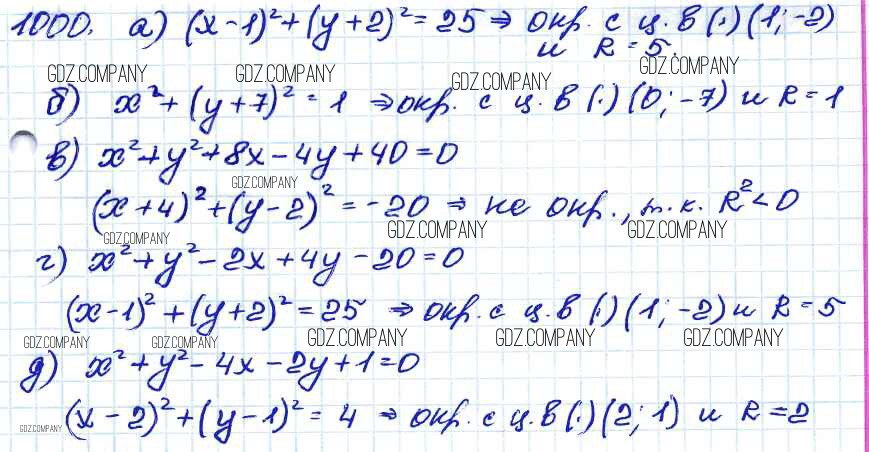 1000. а) (x-1)²+(y+2)²=25 ⇒ окр. с ц. в (·)(1;-2)
и R=5.
GDZ.COMPANY GDZ.COMPANY GDZ.COMPANY GDZ.COMPANY
б) x²+(y+7)²=1 ⇒ окр. с ц. в (·)(0;-7) и R=1
в) x²+y²+8x-4y+40=0
GDZ.COMPANY
(x+4)²+(y-2)²=-20 ⇒ не окр., т.к. R²<0
GDZ.COMPANY GDZ.COMPANY GDZ.COMPANY
г) x²+y²-2x+4y-20=0
(x-1)²+(y+2)²=25 ⇒ окр. с ц. в (·)(1;-2) и R=5
GDZ.COMPANY GDZ.COMPANY GDZ.COMPANY GDZ.COMPANY GDZ.COMPANY
д) x²+y²-4x-2y+1=0
(x-2)²+(y-1)²=4 ⇒ окр. с ц. в (·)(2;1) и R=2
GDZ.COMPANY